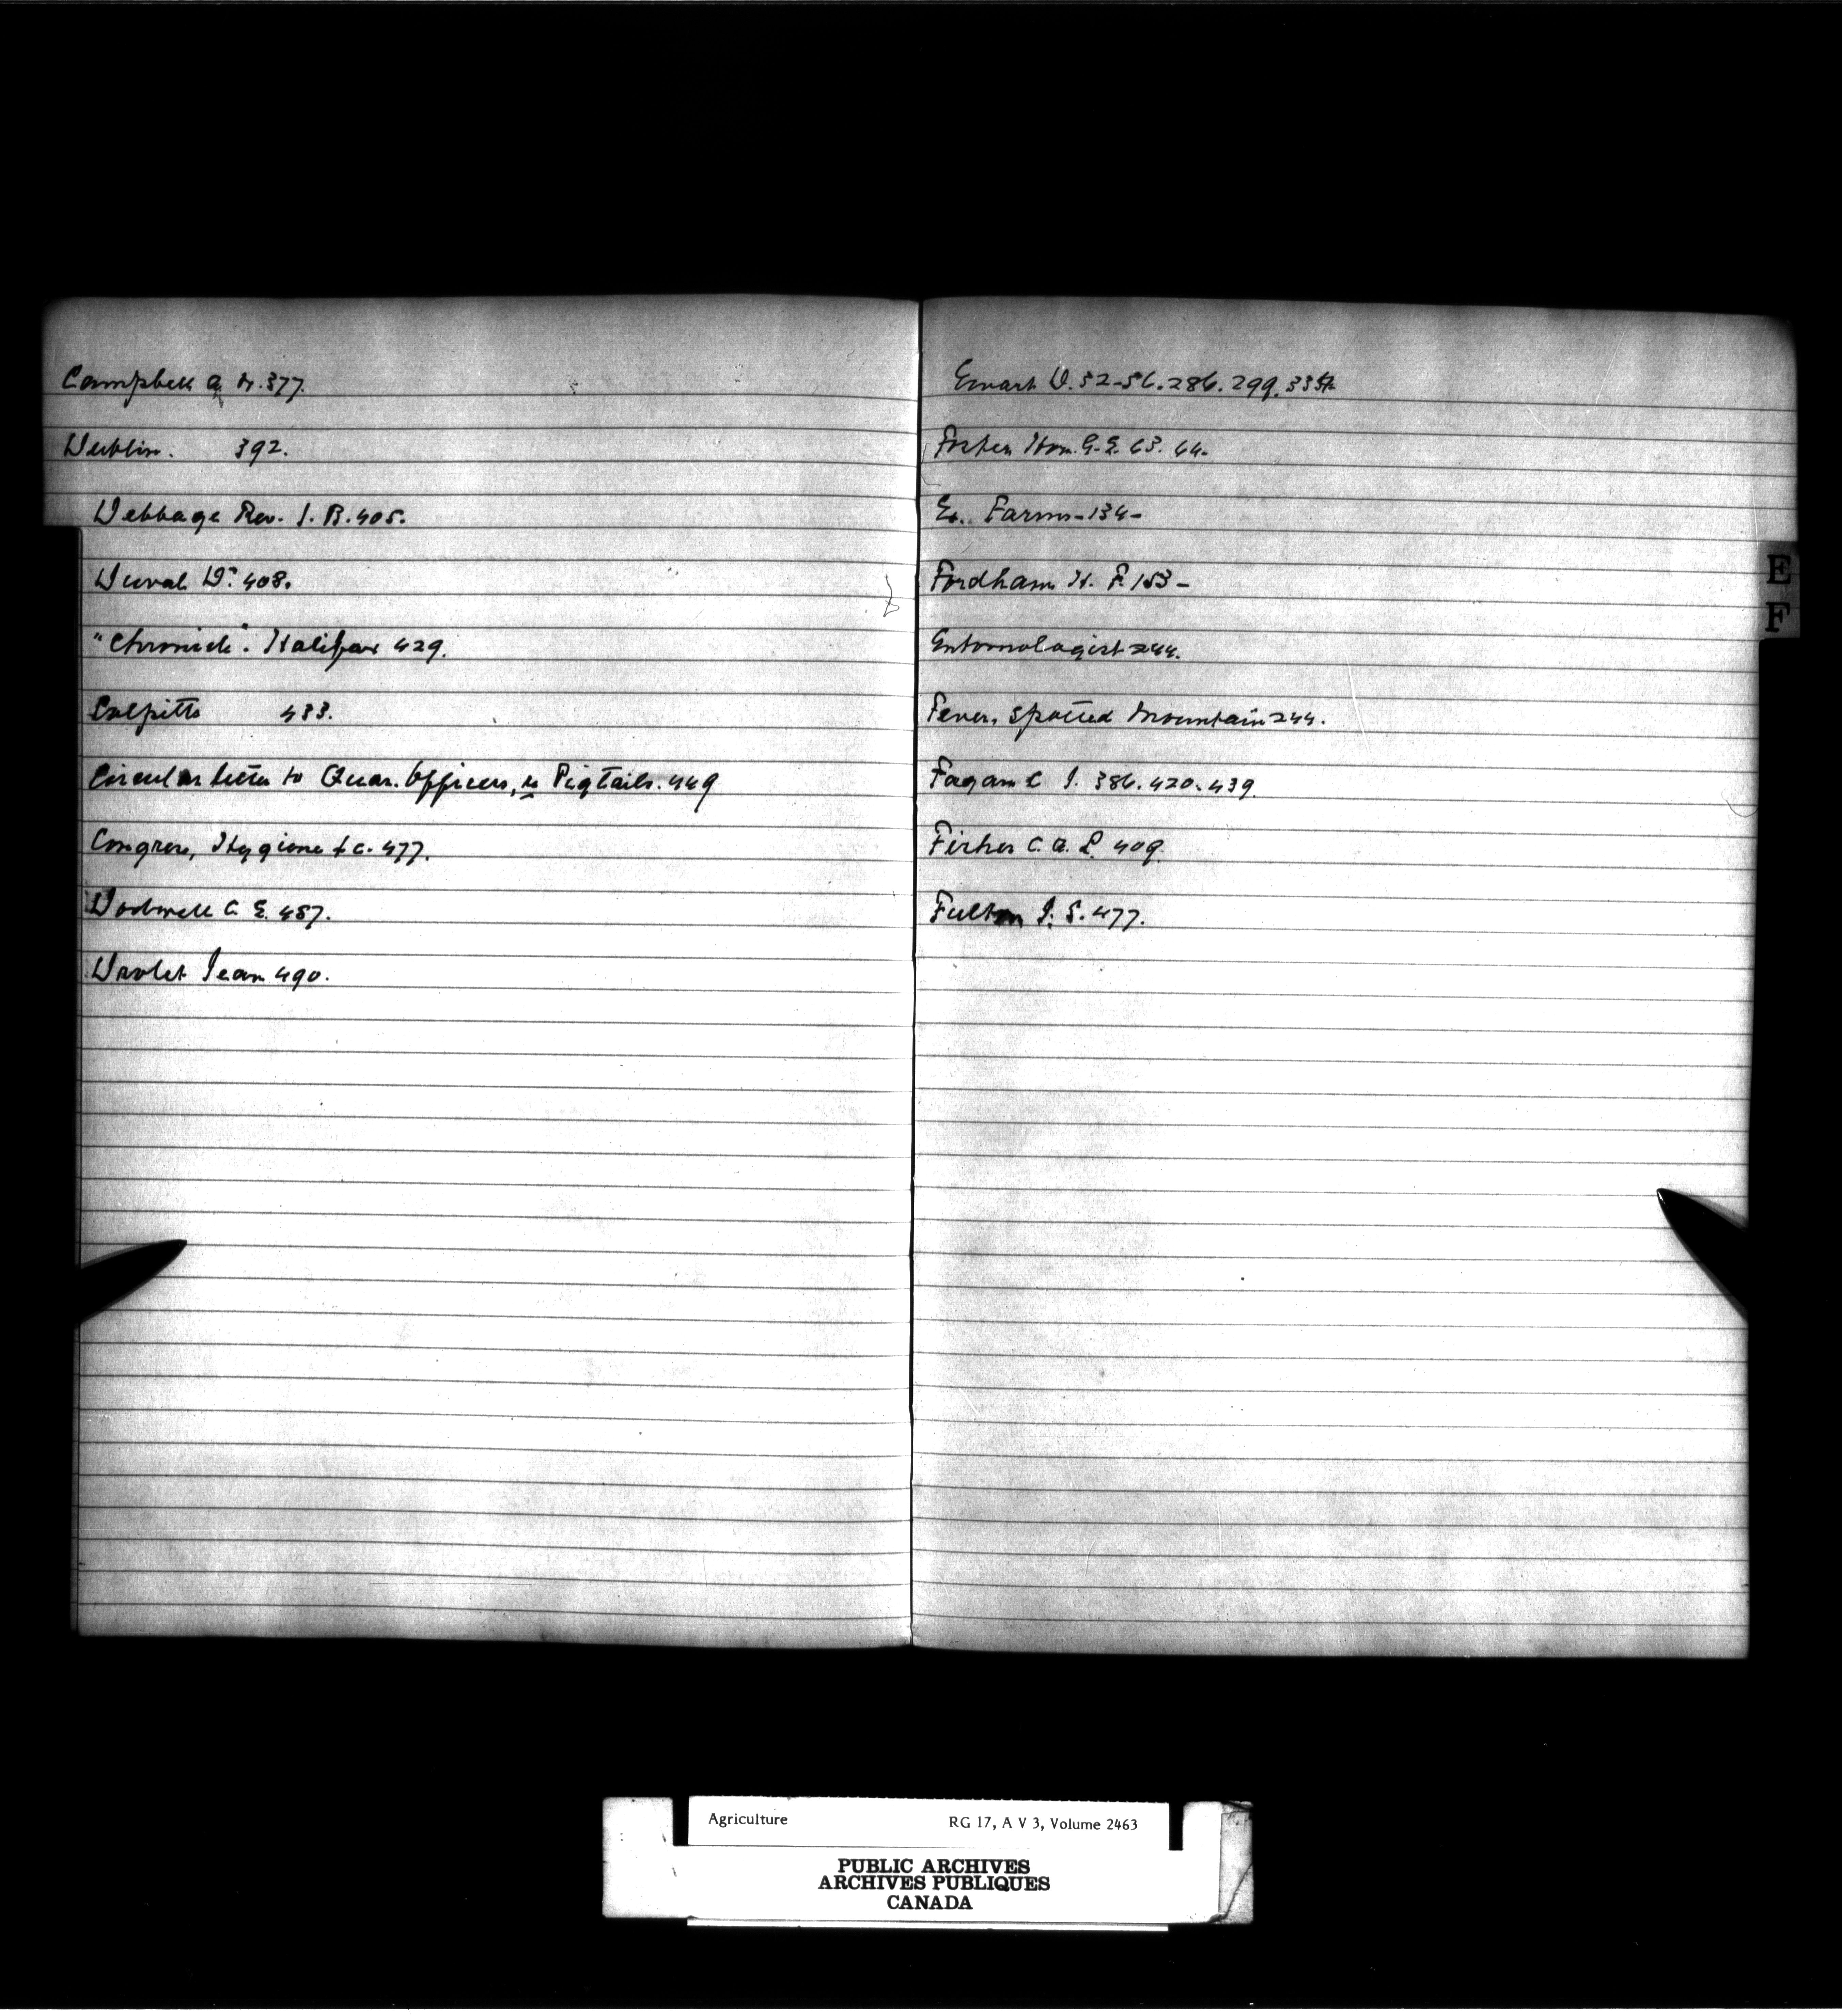 Campbell A. N. 377.
Dublin. 392.
Debbage Rev. J. B. 405.
Duval Dr. 408.
"Chronicle". Halifax 429.
Colpitts 433.
Circular letter to Quar. Officers, re Pigtails. 449
Congress, Hygiene &c. 477.
Dodwell C. E. 487.
Drolet Jean 490.
Ewart D. 52-56. 286. 299.
Foster Hon. G. E. 63. 64-
Ex. Farms-134-
Fordham H. F. 153-
Entomologist 244.
Fever, Spotted Mountain 244.
Fagan C I. 386. 420. 439.
Fisher C. A. L. 409.
Fulton J. S. 477.
E
F
Agriculture RG 17, A V 3, Volume 2463
PUBLIC ARCHIVES
ARCHIVES PUBLIQUES
CANADA